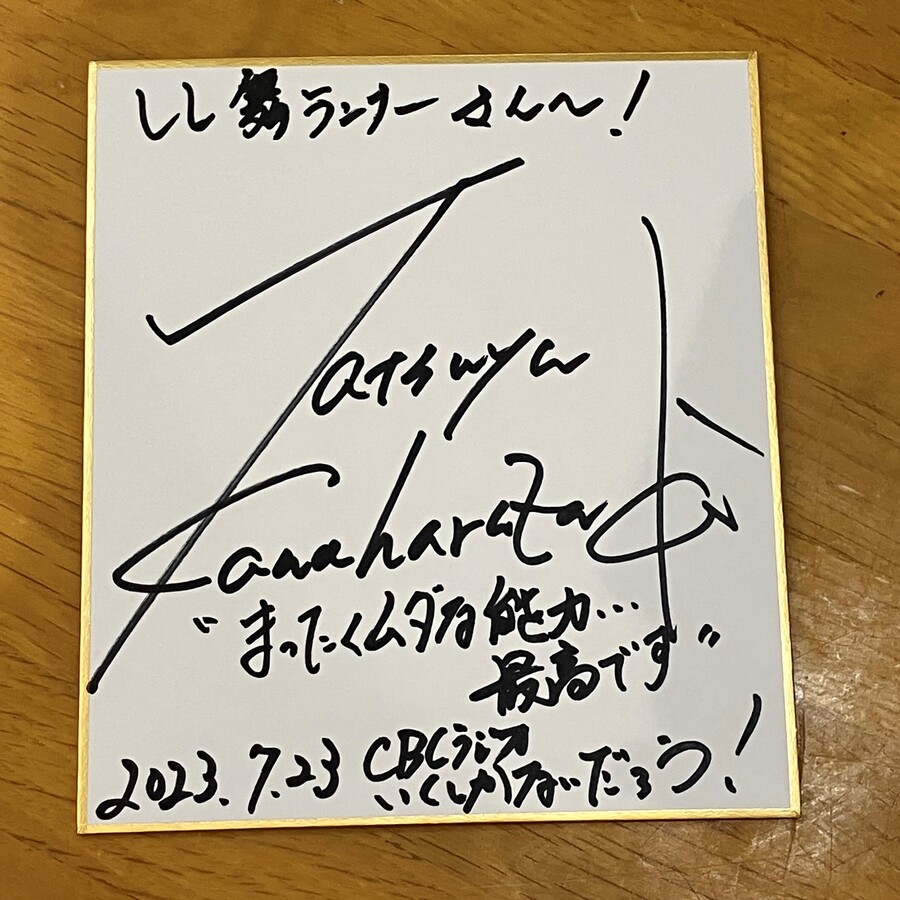 しし舞ランナーさんへ!
Tatsuya
Kawaharazaki
“まったくムダな能力…
最高です”
2023.7.23 CBCラジオ
いくしかないだろう!